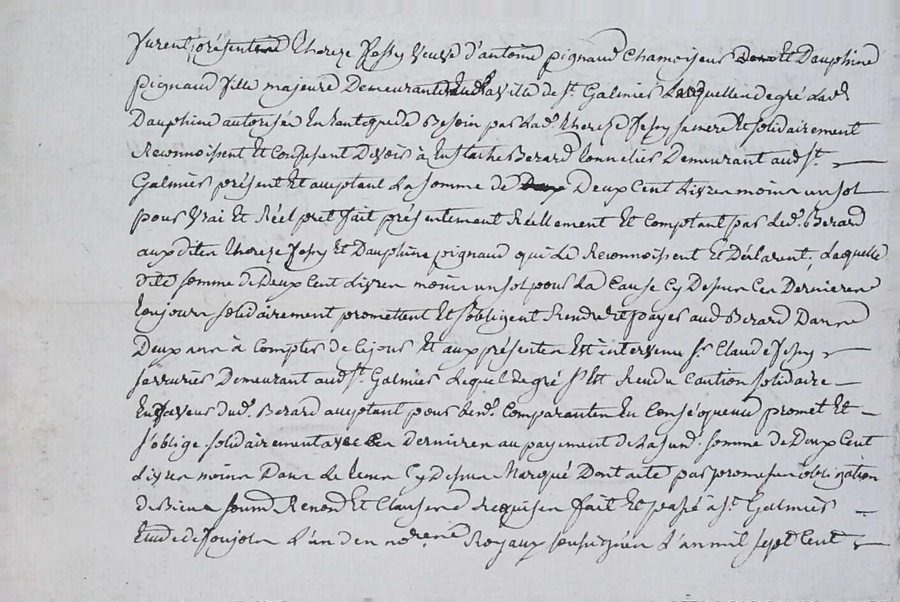 Furent présentes Thereze Fessy veuve d'antoine pignaud chamoiseur et Dauphine
pignaud fille majeure Demeurantes en la ville de St. Galmier Lesquelles de gré Lad.
Dauphine autorisée En tant que de Besoin par Lad. Thereze Fessy sa mere Et solidairement
Reconnoissent Et Confessent Devoir à Eustache Berard tonnelier Demeurant aud. St.
Galmier présent Et acceptant La somme de Deux Cent Livres moins un sol
pour vrai Et Réel pret fait présentement Réellement Et Comptant par Led. Berard
auxdites Thereze Fessy Et Dauphine pignaud qui Le Reconnoissent Et Déclarent, Laquelle
dite somme de Deux Cent Livres moins un sol pour La Cause Cy Dessus Ces Dernieres
toujours solidairement promettent Et s'obligent Rendre Et payer aud. Berard Dans
Deux ans à Compter de Ce jour Et aux présentes Est intervenu Sr. Claude Fessy
serrurier Demeurant aud. St. Galmier Lequel de gré s'est Rendu Caution solidaire
En faveur dud. Berard acceptant pour Lesd. Comparantes En Conséquence promet Et
s'oblige solidairement avec Ces dernieres au payement de La susd. somme de Deux Cent
Livres moins Dans Le tems Cy Dessus Marqué Dont acte par promesse obligation
de Biens soum. Renon. Et Clauses Requises fait Et passé à St. Galmier
Etude de Poujol L'un des no.res Royaux soussignés L'an mil sept Cent